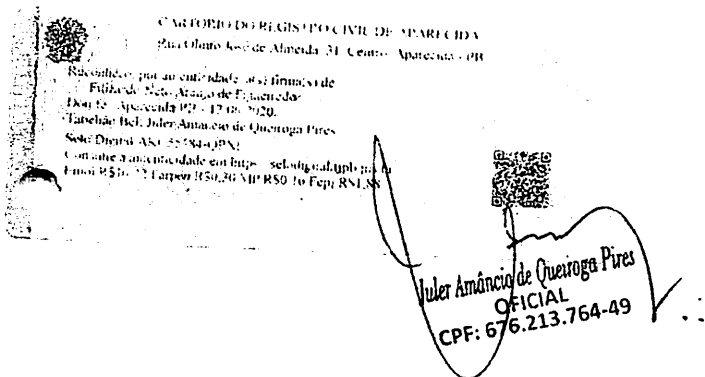 CARTORIO DO REGISTRO CIVIL DE APARECIDA
Rua Olinto José de Almeida 31 Centro Aparecida - PB
Reconheço, por autenticidade a(s) firma(s) de
Neto Araujo de Figueiredo
Dou fé. Aparecida PB - 17 06 2020.
Tabelião Bel. Juler Amancio de Queiroga Pires
Selo Digital
Consulte a autenticidade em https selodigital.tjpb
Emol R$10 Farpen R$0,30 MP R$0 16 Fepj R$1,88
Juler Amâncio de Queiroga Pires
OFICIAL
CPF: 676.213.764-49